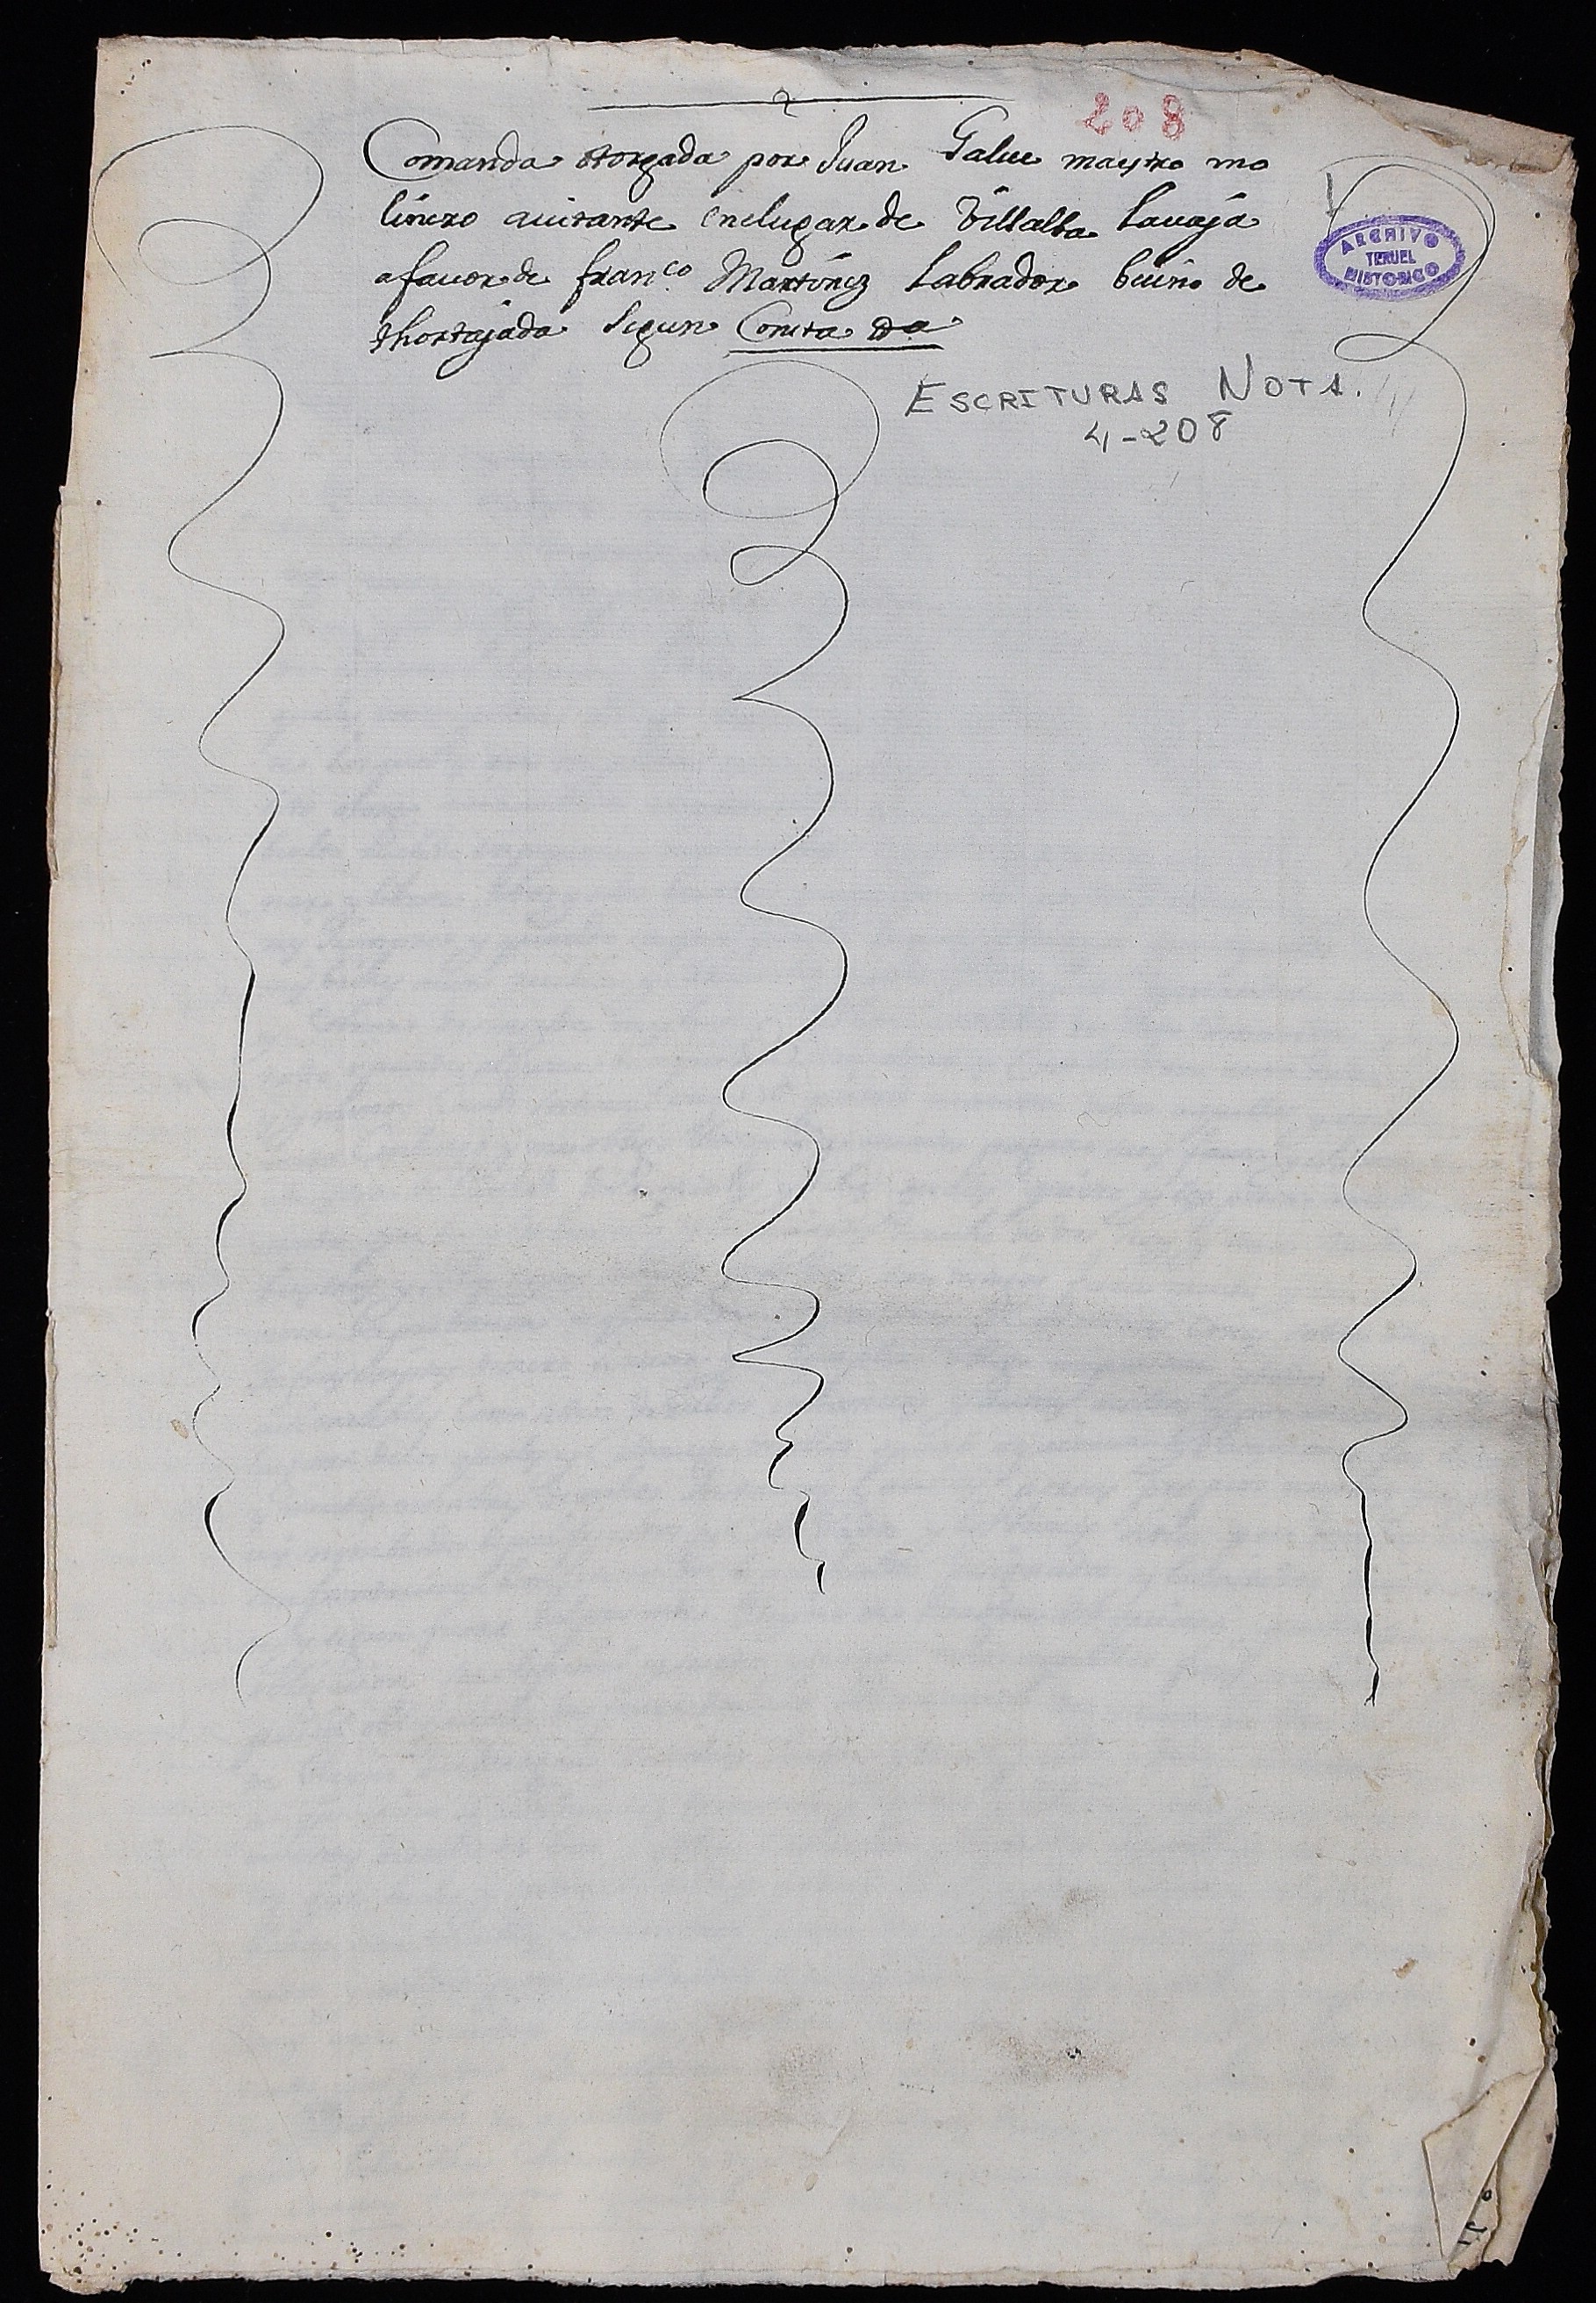 208
Comanda otorgada por Juan Galue maestro mo
linero auitante enelugar de Villalba Lauaja
afauor de fran.co Martinez Labrador beuino de
thortajada Segun Consta
ARCHIVO
TERUEL
HISTORICO
ESCRITURAS NOTA.
4-208